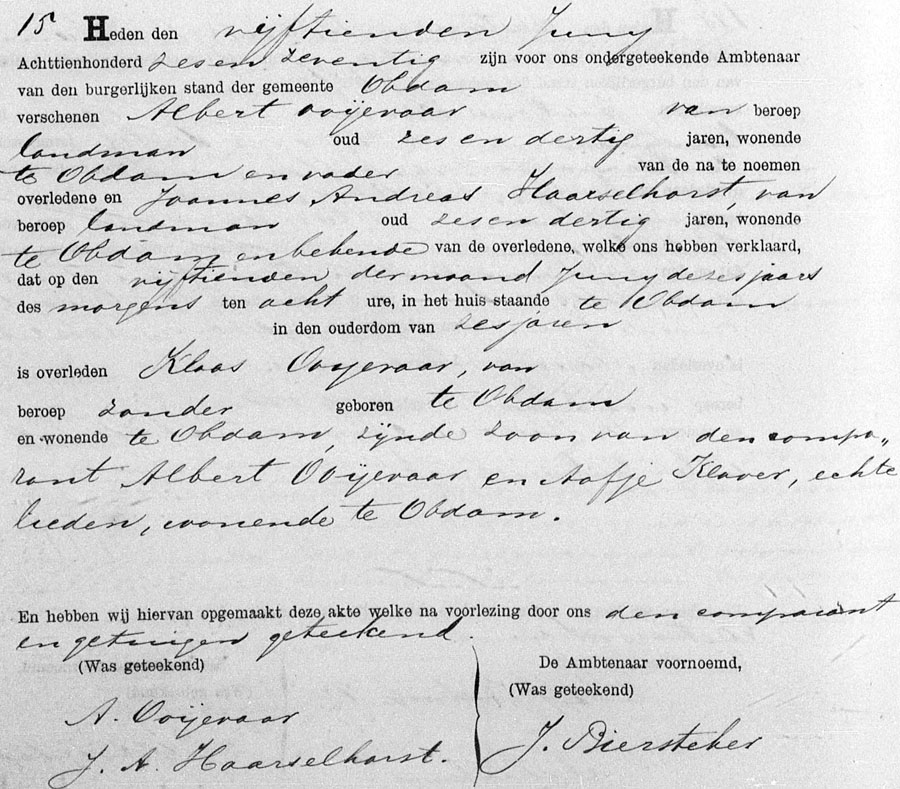 15 Heden den vijftienden Juny
Achttienhonderd zes en zeventig zijn voor ons ondergeteekende Ambtenaar
van den burgerlijken stand der gemeente Obdam
verschenen Albert Ooijevaar van beroep
landman oud zes en dertig jaren, wonende
te Obdam en vader van de na te noemen
overledene en Joannes Andreas Haarselhorst, van
beroep landman oud zes en dertig jaren, wonende
te Obdam en bekende van de overledene, welke ons hebben verklaard,
dat op den vijftienden der maand Juny dezes jaars
des morgens ten acht ure, in het huis staande te Obdam
in den ouderdom van zes jaren
is overleden Klaas Ooyevaar, van
beroep zonder geboren te Obdam
en wonende te Obdam, zijnde zoon van den compa„
rant Albert Ooijevaar en Aafje Klaver, echte
lieden, wonende te Obdam.
En hebben wij hiervan opgemaakt deze akte welke na voorlezing door ons den comparant
en getuigen geteekend.
(Was geteekend)
A. Ooijevaar
J. A. Haarselhorst.
De Ambtenaar voornoemd,
(Was geteekend)
J. Biersteker